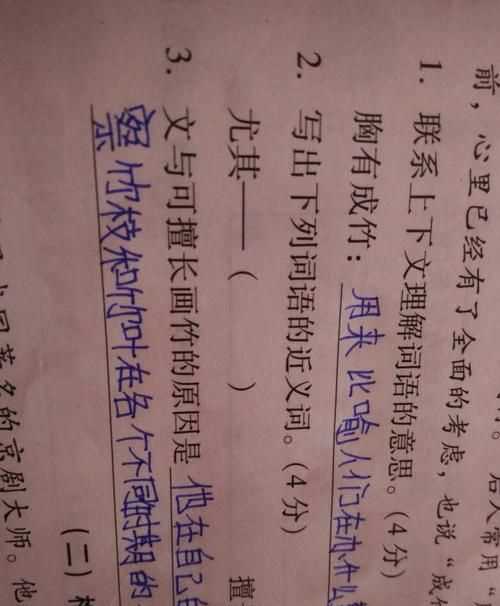 前，心里已经有了全面的考虑，也说“成
1. 联系上下文理解词语的意思。(4分)
胸有成竹：用来比喻人们在办什么
2. 写出下列词语的近义词。(4分)
尤其——( ) 擅
3. 文与可擅长画竹的原因是他在自己
察竹枝和竹叶在各个不同时期的
(二)
的京剧大师。他